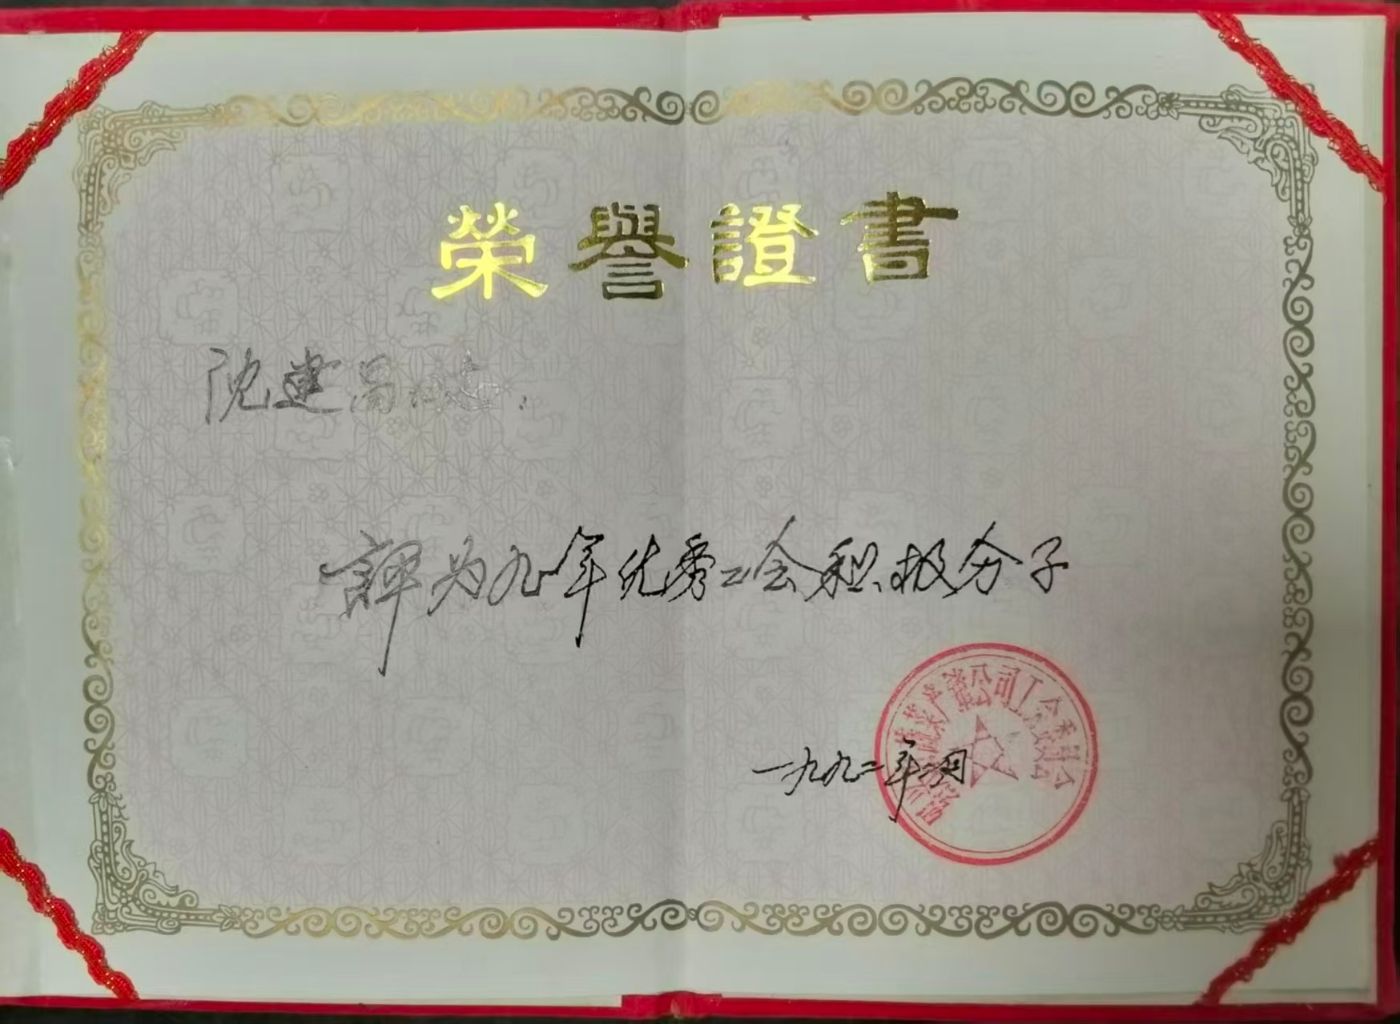 榮譽證書
沈建昌同志:
評为九一年优秀工会积极分子
一九九二年二月
公司工会委員会